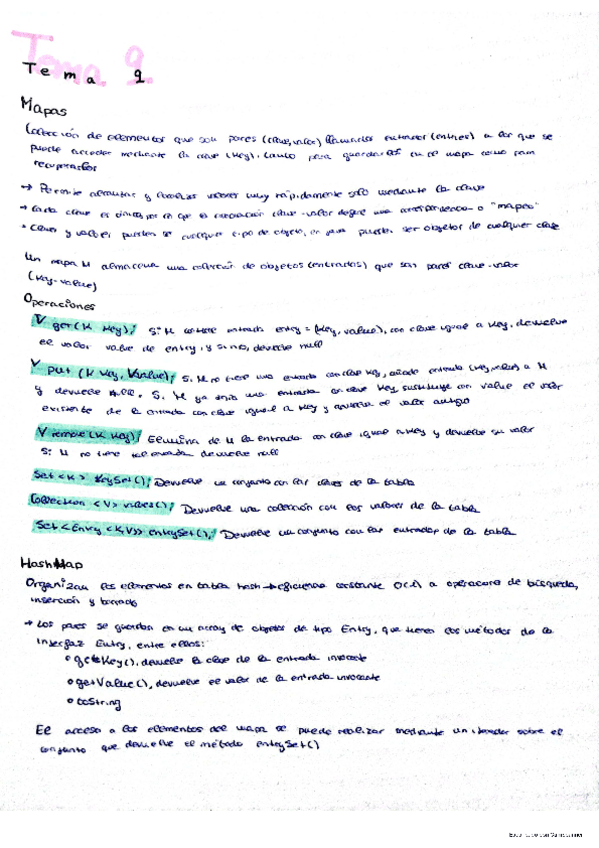 Tema 9.
Tema 9
Mapas
Colección de elementos que son pares (clave, valor) llamados entradas (entries) a los que se
puede acceder mediante la clave (key), tanto para guardarlos en el mapa como para
recuperarlos
→ Permite almacenar y localizar valores muy rápidamente solo mediante la clave
→ Cada clave es única, por lo que la asociación clave-valor define una correspondencia o "mapeo"
• Claves y valores pueden ser cualquier tipo de objeto, en java pueden ser objetos de cualquier clase
Un mapa M almacena una colección de objetos (entradas) que son pares clave-valor
(key-value)
Operaciones
V get(K key); Si M contiene entrada entry = (key, value), con clave igual a key, devuelve
el valor value de entry, y si no, devuelve null
V put (K key, V value); Si M no tiene una entrada con clave key, añade entrada (key, value) a M
y devuelve null. Si M ya tenía una entrada con clave key, sustituye con value el valor
existente de la entrada con clave igual a key y devuelve el valor antiguo
V remove(K key); Elimina de M la entrada con clave igual a key y devuelve su valor
Si M no tiene tal entrada devuelve null
Set<K> keySet(); Devuelve un conjunto con las claves de la tabla
Collection <V> values(); Devuelve una colección con los valores de la tabla
Set<Entry<K,V>> entrySet(); Devuelve un conjunto con las entradas de la tabla
HashMap
Organizan los elementos en tabla hash → eficiencia constante O(1) a operaciones de búsqueda,
inserción y borrado
→ Los pares se guardan en un array de objetos de tipo Entry, que tienen los métodos de la
interfaz Entry, entre ellos:
getKey(), devuelve la clave de la entrada invocante
getValue(), devuelve el valor de la entrada invocante
toString
El acceso a los elementos del mapa se puede realizar mediante un iterador sobre el
conjunto que devuelve el método entrySet()